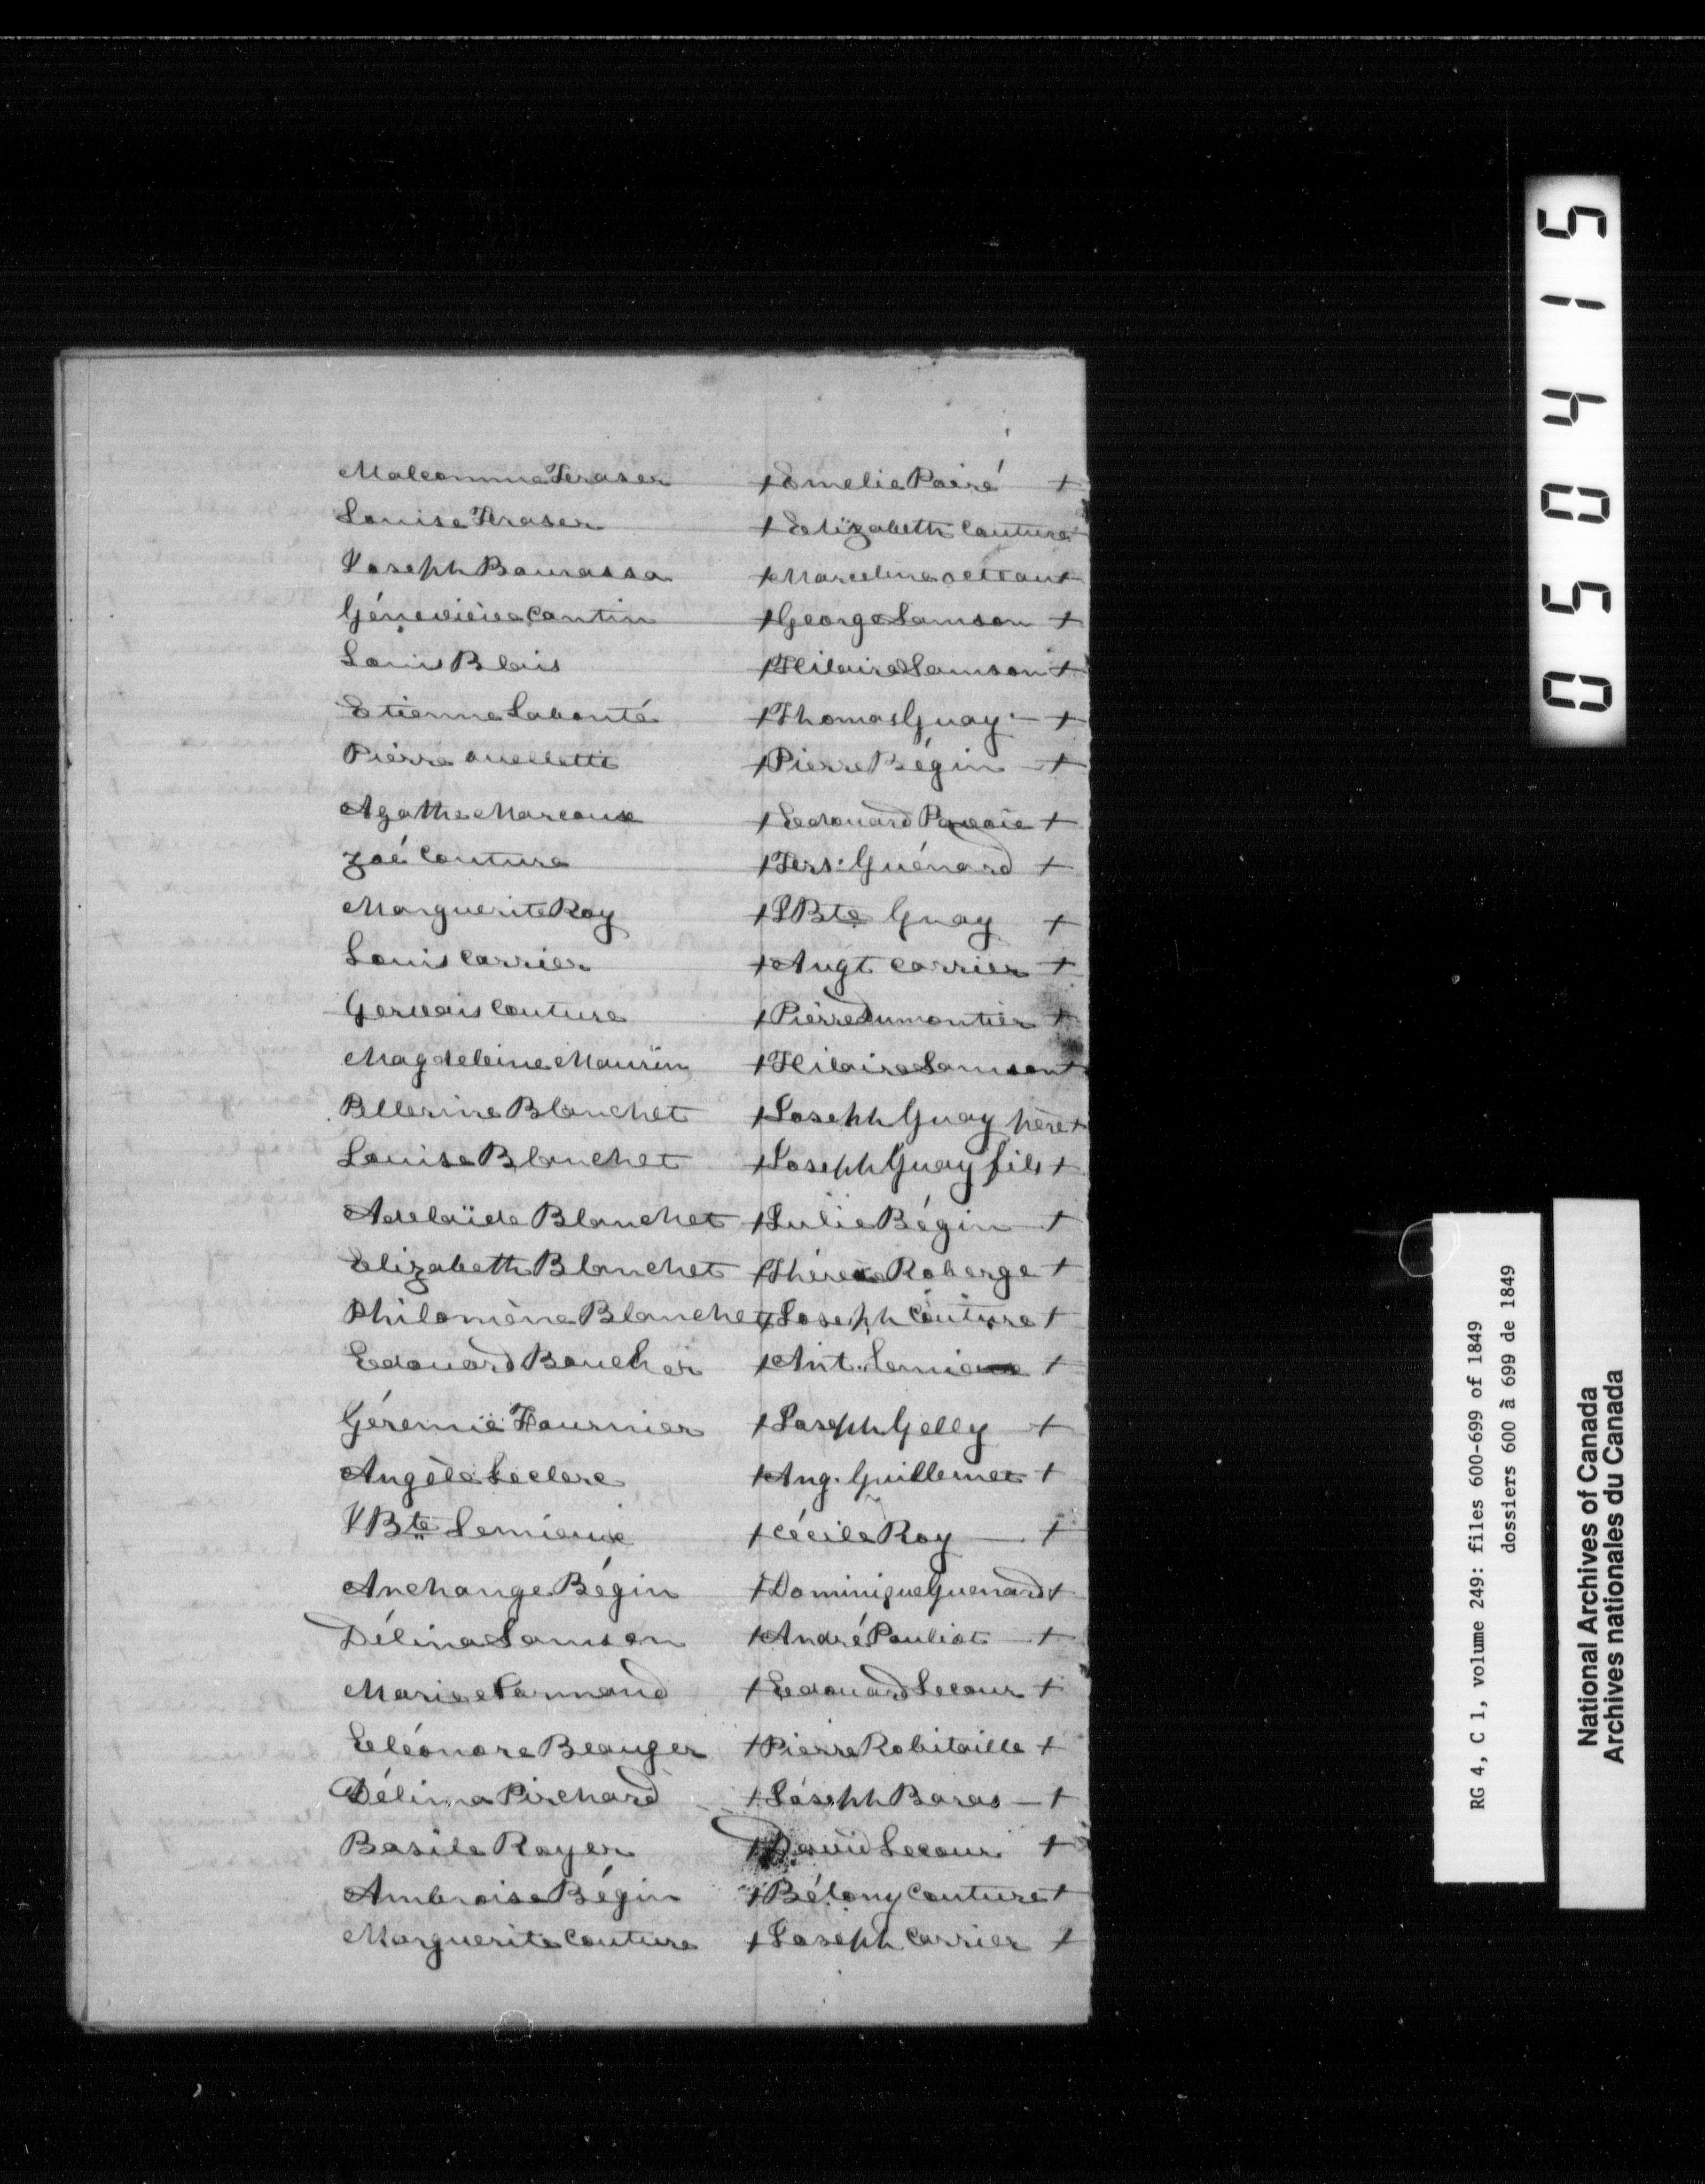 Malcomme Feraser + Emelie Poiré +
Louise Feraser + Elizabeth Couture
Joseph Bourassa + Marceline +
Génevieve Cantin + George Samson +
Louis Blais + Hilaire Samson +
Etienne Labonté + Thomas Guay +
Piérre Ouellette + Pierre Bégin +
Agathe Marcoux + Edouard +
Zoé Couture + Fers: Guénard +
Marguerite Roy + J Bte Guay +
Louis Carrier + Augt Carrier +
Gervais Couture + Piérre Dumontier +
Magdeleine Maurin + Hilaire Samson +
Pllerine Blanchet + Joseph Guay père +
Louise Blanchet + Joseph Guay fils +
Adelaïde Blanchet + Julie Bégin +
Elizabeth Blanchet + Thérese Roberge +
Philomène Blanchet + Joseph Couture +
Edouard Boucher + Ant. Lemieux +
Géremie Fournier + Joseph Gelly +
Angèle Leclerc + Aug. Guillemet +
J Bte Lemieux + Cécile Roy +
Archange Bégin + Dominique Guenard +
Délina Samson + André Pouliot +
Marie Parmend + Edouard Lecour +
Eléonore Beauger + Pierre Robitaille +
Délima Pirchard + Joseph Baras +
Basile Royer + David Lecour +
Ambroise Bégin + Bélony Couture +
Marguerite Couture + Joseph Carrier +
050415
RG 4, C 1, volume 249: files 600-699 of 1849
dossiers 600 à 699 de 1849
National Archives of Canada
Archives nationales du Canada